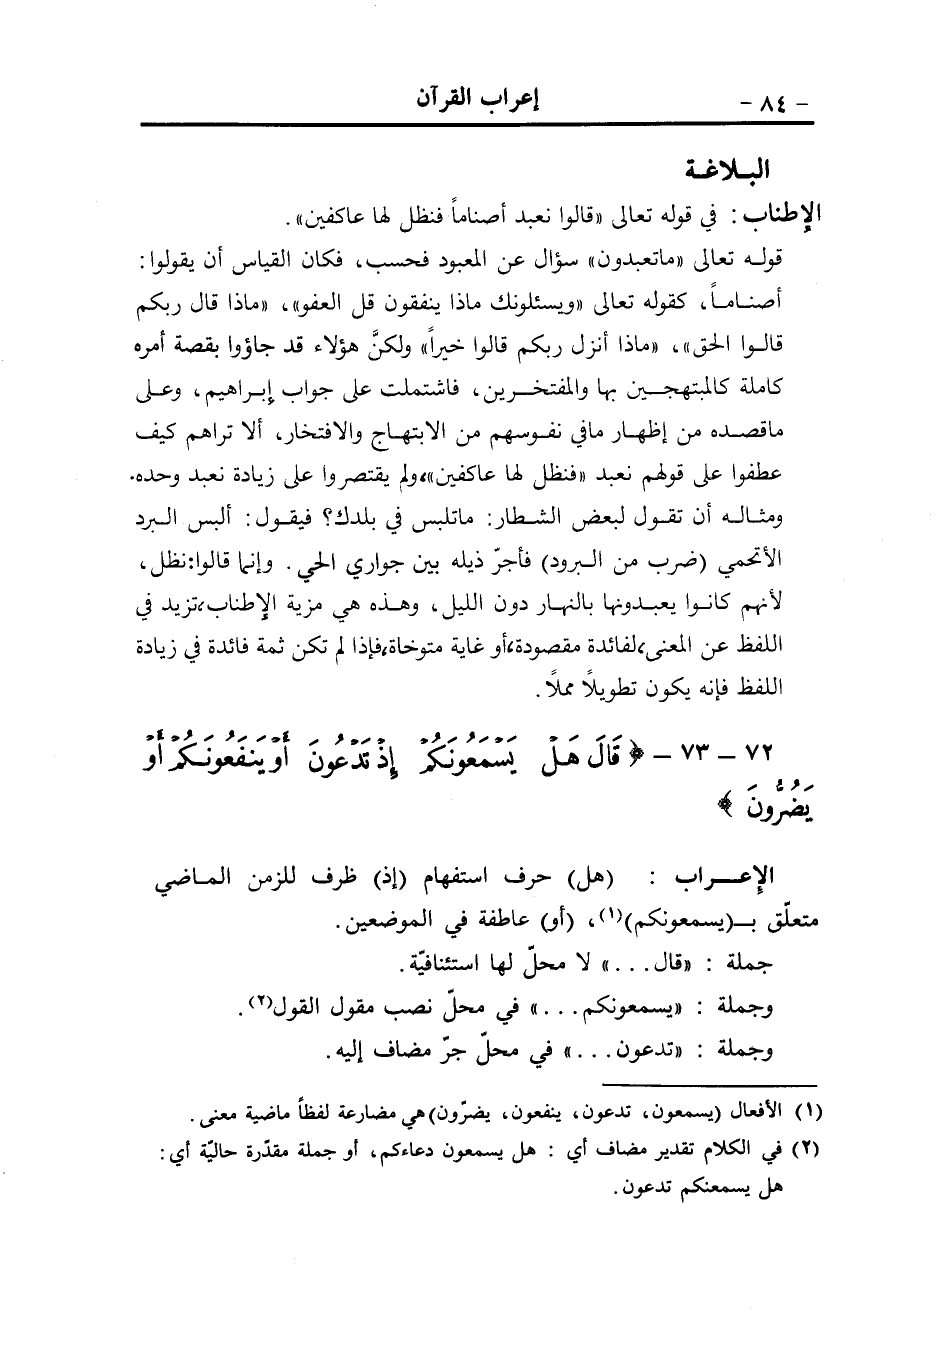 - ٨٤ - إعراب القرآن
البـلاغـة
الإطناب : في قوله تعالى «قالوا نعبد أصناماً فنظل لها عاكفين» .
قولـه تعالى «ماتعبدون» سؤال عن المعبود فحسب، فكان القياس أن يقولوا :
أصنـامـاً، كقوله تعالى «ويسئلونك ماذا ينفقون قل العفو»، «ماذا قال ربكم
قالـوا الحق»، «ماذا أنزل ربكم قالوا خيراً» ولكنَّ هؤلاء قد جاؤوا بقصة أمره
كاملة كالمبتهجـــين بها والمفتخـــرين، فاشتملت على جواب إبـراهيم، وعـلى
ماقصـده من إظهـار مافي نفـوسهم من الابتهـاج والافتخار، ألا تراهم كيف
عطفوا على قولهم نعبد «فنظل لها عاكفين»،ولم يقتصروا على زيادة نعبد وحده.
ومثـالـه أن تقـول لبعض الشـطار: ماتلبس في بلدك؟ فيقـول: ألبس الـبرد
الأتحمي (ضرب من الـبرود) فأجرّ ذيله بين جواري الحي . وإنما قالوا:نظل،
لأنهم كانـوا يعبـدونها بالنهـار دون الليل، وهـذه هي مزية الإطناب،تزيد في
اللفظ عن المعنى،لفائدة مقصودة،أو غاية متوخاة،فإذا لم تكن ثمة فائدة في زيادة
اللفظ فإنه يكون تطويلاً مملاً.
٧٢ - ٧٣ - ﴿ قَالَ هَلْ يَسْمَعُونَكُمْ إِذْ تَدْعُونَ أَوْ يَنفَعُونَكُمْ أَوْ
يَضُرُّونَ ﴾
الإعـــراب : (هل) حرف استفهام (إذ) ظرف للزمن المـاضي
متعلّق بــ(يسمعونكم)(١)، (أو) عاطفة في الموضعين.
جملة : «قال...» لا محلّ لها استئنافيّة.
وجملة : «يسمعونكم...» في محلّ نصب مقول القول(٢).
وجملة : «تدعون...» في محلّ جرّ مضاف إليه.
(١) الأفعال (يسمعون، تدعون، ينفعون، يضرّون)هي مضارعة لفظاً ماضية معنى.
(٢) في الكلام تقدير مضاف أي : هل يسمعون دعاءكم، أو جملة مقدّرة حاليّة أي:
هل يسمعنكم تدعون.